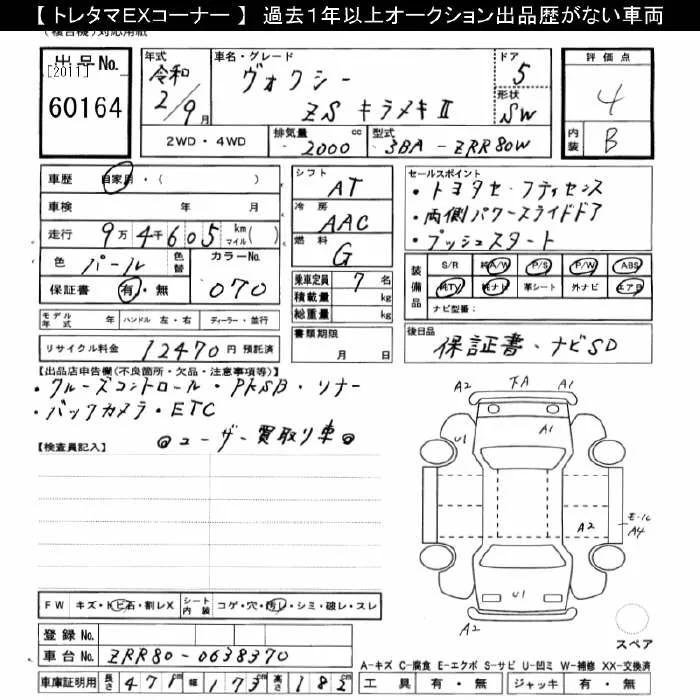 【 トレタマEXコーナー 】 過去1年以上オークション出品歴がない車両
（複合機）対応用紙
出品No. [2011] 60164
年式 令和 2/9月
車名・グレード ヴォクシー ZS キラメキⅡ
ドア 5
形状 SW
評価点 4
内装 B
2WD・4WD
排気量 2000 cc
型式 3BA-ZRR80W
車歴 自家用・( )
車検 年 月
走行 9万4千605 km(マイル)
色 パール 色替
カラーNo. 070
保証書 有・無
シフト AT
冷房 AAC
燃料 G
乗車定員 7 名
積載量 kg
総重量 kg
セールスポイント
・トヨタセーフティセンス
・両側パワースライドドア
・プッシュスタート
装備品 S/R 純A/W P/S P/W ABS
純TV 純ナビ 革シート 外ナビ エアB
ナビ型番：
モデル年式 年 ハンドル 左・右 ディーラー・並行
リサイクル料金 12470 円 預託済
書類期限 月 日
後日品 保証書・ナビSD
【出品店申告欄(不良箇所・欠品・注意事項等)】
・クルーズコントロール・PKSB・ソナー
・バックカメラ・ETC
◎ユーザー買取り車◎
【検査員記入】
A2 下A A1
U1 A1
A2 E-1C A4
U1
A2
スペア
FW キズ・トビ石・割レX
シート内装 コゲ・穴・汚レ・シミ・破レ・スレ
登録No.
車台No. ZRR80-0638370
A-キズ C-腐食 E-エクボ S-サビ U-凹ミ W-補修 XX-交換済
車庫証明用 長さ 471cm 幅 173cm 高さ 182cm
工具 有・無 ジャッキ 有・無